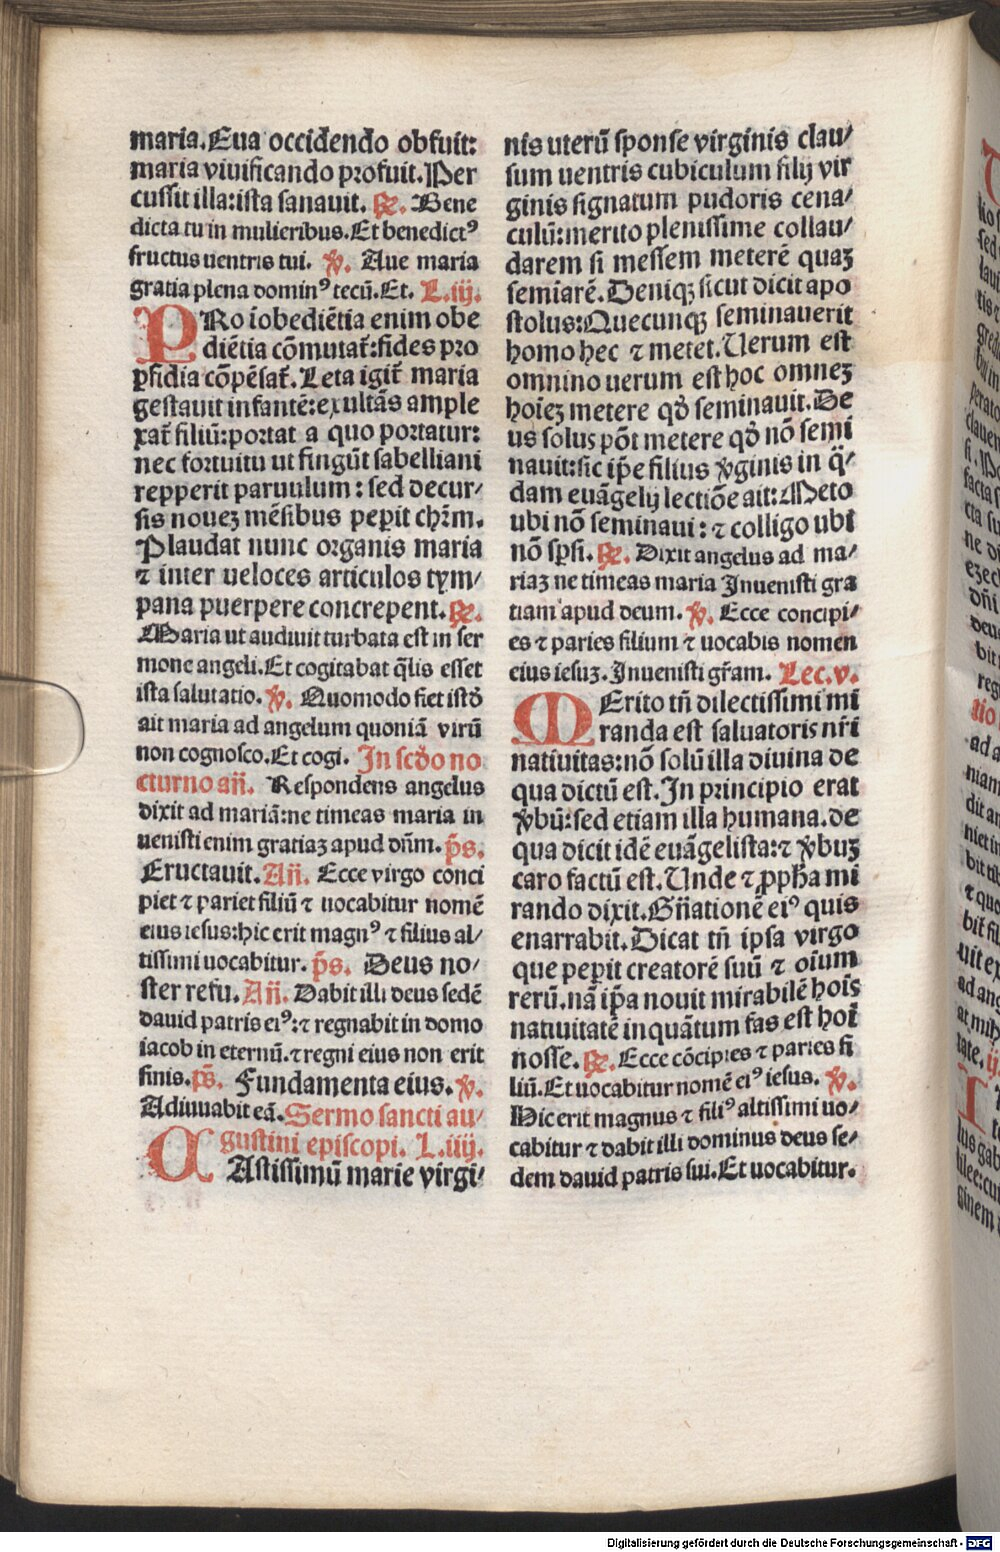 maria.Eua occidendo obfuit:
maria viuificando profuit.Per
cussit illa:ista sanauit. ℟. Bene
dicta tu in mulieribus.Et benedictꝰ
fructus uentris tui. ℣. Aue maria
gratia plena dominꝰ tecū.Et. L.iij.
PRo iobediētia enim obe
diētia cōmutat᷑:fides pro
ꝑfidia cōpēsat᷑.Leta igit᷑ maria
gestauit infantē:exultās ample
xat᷑ filiū:portat a quo portatur:
nec fortuitu ut fingūt sabelliani
repperit paruulum:sed decur/
sis nouez mēsibus peꝑit chr̄m.
Plaudat nunc organis maria
⁊ inter veloces articulos tym/
pana puerpere concrepent.℟.
Maria ut audiuit turbata est in ser
mone angeli.Et cogitabat q̄lis esset
ista salutatio. ℣. Quomodo fiet istd̄
ait maria ad angelum quoniā virū
non cognosco.Et cogi. In scd̄o no
cturno añ. Respondens angelus
dixit ad mariā:ne timeas maria in
uenisti enim gratiaz apud dn̄m. p̄s.
Eructauit.Añ. Ecce virgo conci
piet ⁊ pariet filiū ⁊ uocabitur nomē
eius iesus:hic erit magnꝰ ⁊ filius al/
tissimi uocabitur. p̄s. Deus no/
ster refu.Añ. Dabit illi deus sedē
dauid patris eiꝰ:⁊ regnabit in domo
iacob in eternū.⁊ regni eius non erit
finis.p̄s. Fundamenta eius.℣.
Adiuuabit eā.Sermo sancti au/
gustini episcopi. L.iiij.
CAstissimū marie virgi/
nis uterū sponse virginis clau/
sum uentris cubiculum filij vir
ginis signatum pudoris cena/
culū:merito plenissime collau/
darem si messem meterē quaz
semiarē.Deniqꝫ sicut dicit apo
stolus:Quecunqꝫ seminauerit
homo hec ⁊ metet.Verum est
omnino uerum est hoc omnez
hoiez metere qd̄ seminauit.De
us solus pōt metere qd̄ nō semi
nauit:sic ip̄e filius v̓ginis in q̄/
dam euāgelij lectiōe ait:Meto
ubi nō seminaui:⁊ colligo ubi
nō sꝑsi.℟. Dixit angelus ad ma/
riaz ne timeas maria Inuenisti gra
tiam apud deum. ℣. Ecce concipi/
es ⁊ paries filium ⁊ uocabis nomen
eius iesuz.Inuenisti gr̄am. Lec.v.
MErito tn̄ dilectissimi mi
randa est saluatoris nr̄i
natiuitas:nō solū illa diuina de
qua dictū est.In principio erat
v̓bū:sed etiam illa humana.de
qua dicit idē euāgelista:⁊ v̓buz
caro factū est.Unde ⁊ ꝓph̄a mi
rando dixit.Gn̄ationē eiꝰ quis
enarrabit.Dicat tn̄ ipsa virgo
que peꝑit creatorē suū ⁊ oīum
rerū.nā ip̄a nouit mirabilē hoīs
natiuitatē inquātum fas est hoī
nosse.℟. Ecce cōcipies ⁊ paries fi
liū.Et uocabitur nomē eiꝰ iesus. ℣.
Hic erit magnus ⁊ filiꝰ altissimi uo/
cabitur ⁊ dabit illi dominus deus se/
dem dauid patris sui.Et uocabitur.
Digitalisierung gefördert durch die Deutsche Forschungsgemeinschaft - DFG